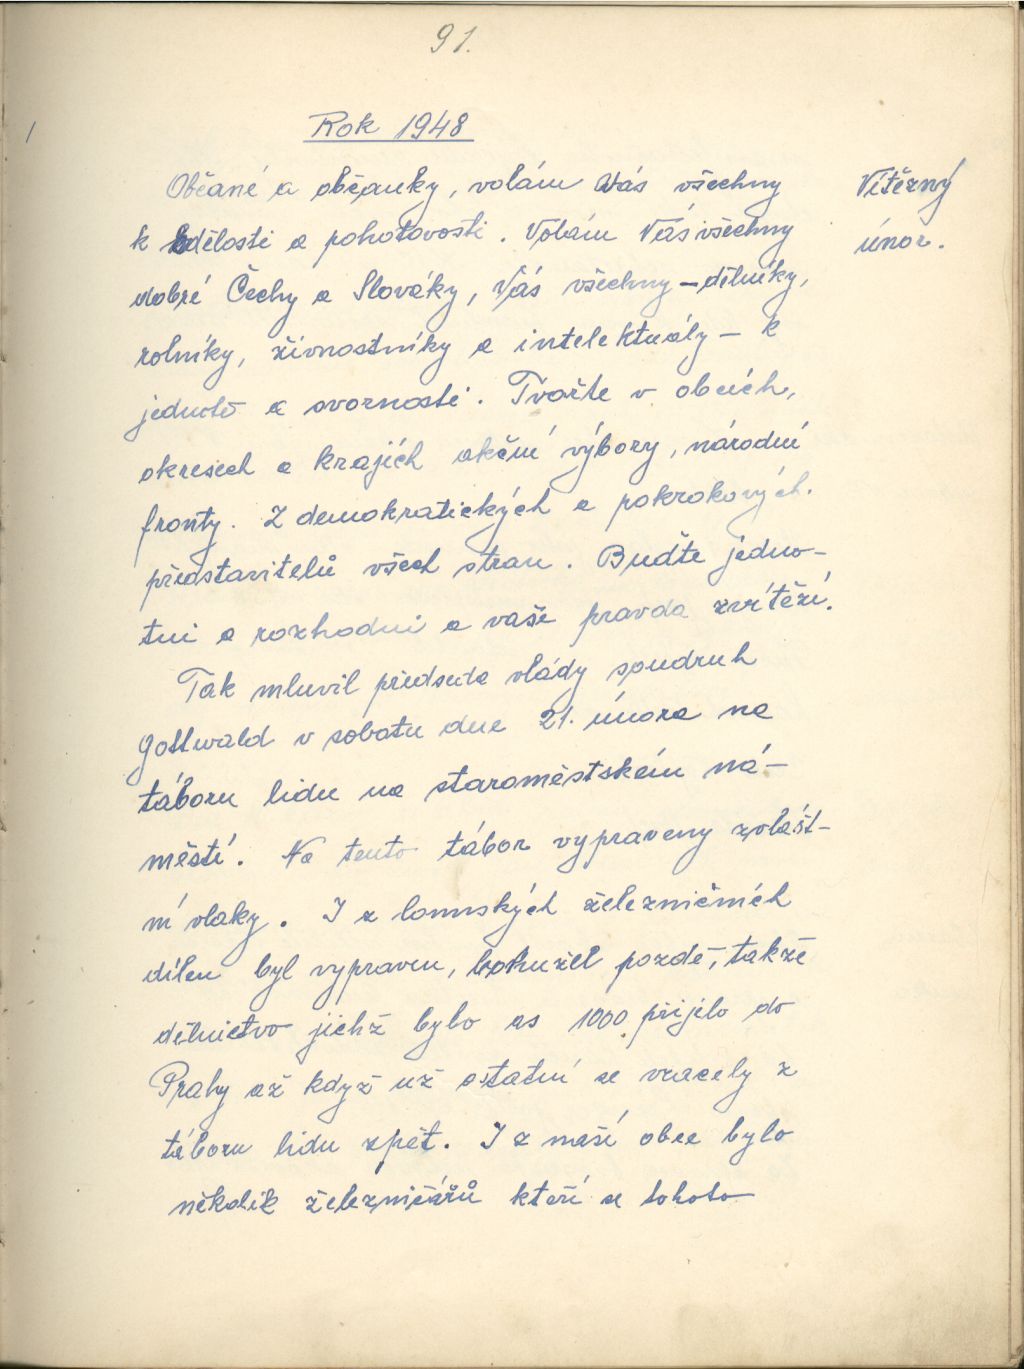 91.
Rok 1948
Občané a občanky, volám Vás všechny
Vítězný
k bdělosti a pohotovosti. Volám Vás všechny
únor.
dobré Čechy a Slováky, Vás všechny – dělníky,
rolníky, živnostníky a intelektuály – k
jednotě a svornosti. Tvořte v obcích,
okresech a krajích akční výbory, národní
fronty. Z demokratických a pokrokových.
představitelů všech stran. Buďte jedno-
tni a rozhodni a vaše pravda zvítězí.
Tak mluvil předseda vlády soudruh
Gottwald v sobotu dne 21. února na
táboru lidu na staroměstském ná-
městí. Na tento tábor vypraveny zvlášt-
ní vlaky. I z lounských železničních
dílen byl vypraven, bohužel pozdě, takže
dělnictvo jichž bylo as 1000 přijelo do
Prahy až když už ostatní se vracely z
táboru lidu zpět. I z naší obce bylo
několik železničářů kteří se tohoto